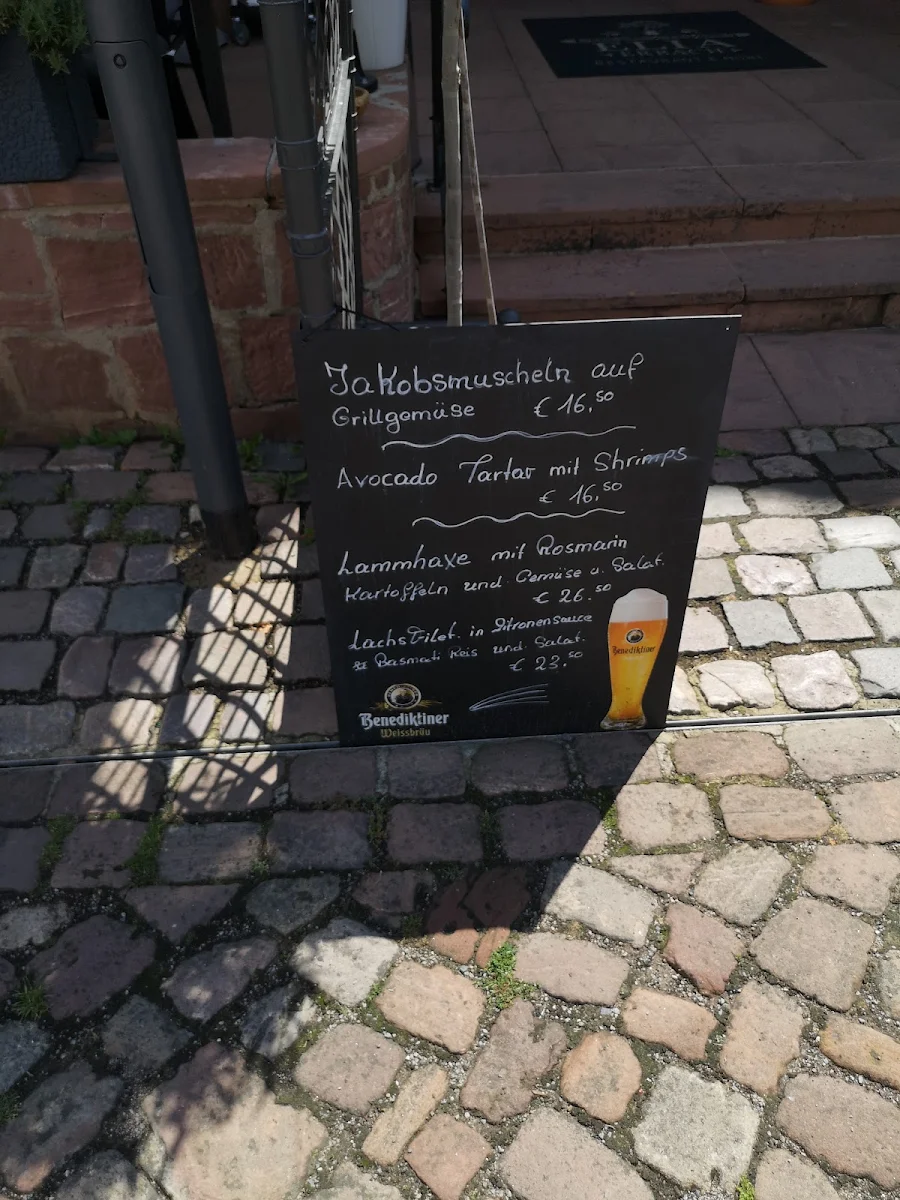 ELIA
RESTAURANT &
Jakobsmuscheln auf
Grillgemüse € 16,50
Avocado Tartar mit Shrimps
€ 16,50
Lammhaxe mit Rosmarin
Kartoffeln und Gemüse u. Salat.
€ 26.50
Lachsfilet. in Zitronensauce
Basmati Reis und Salat.
€ 23.50
Benediktiner
Benediktiner
Weissbräu